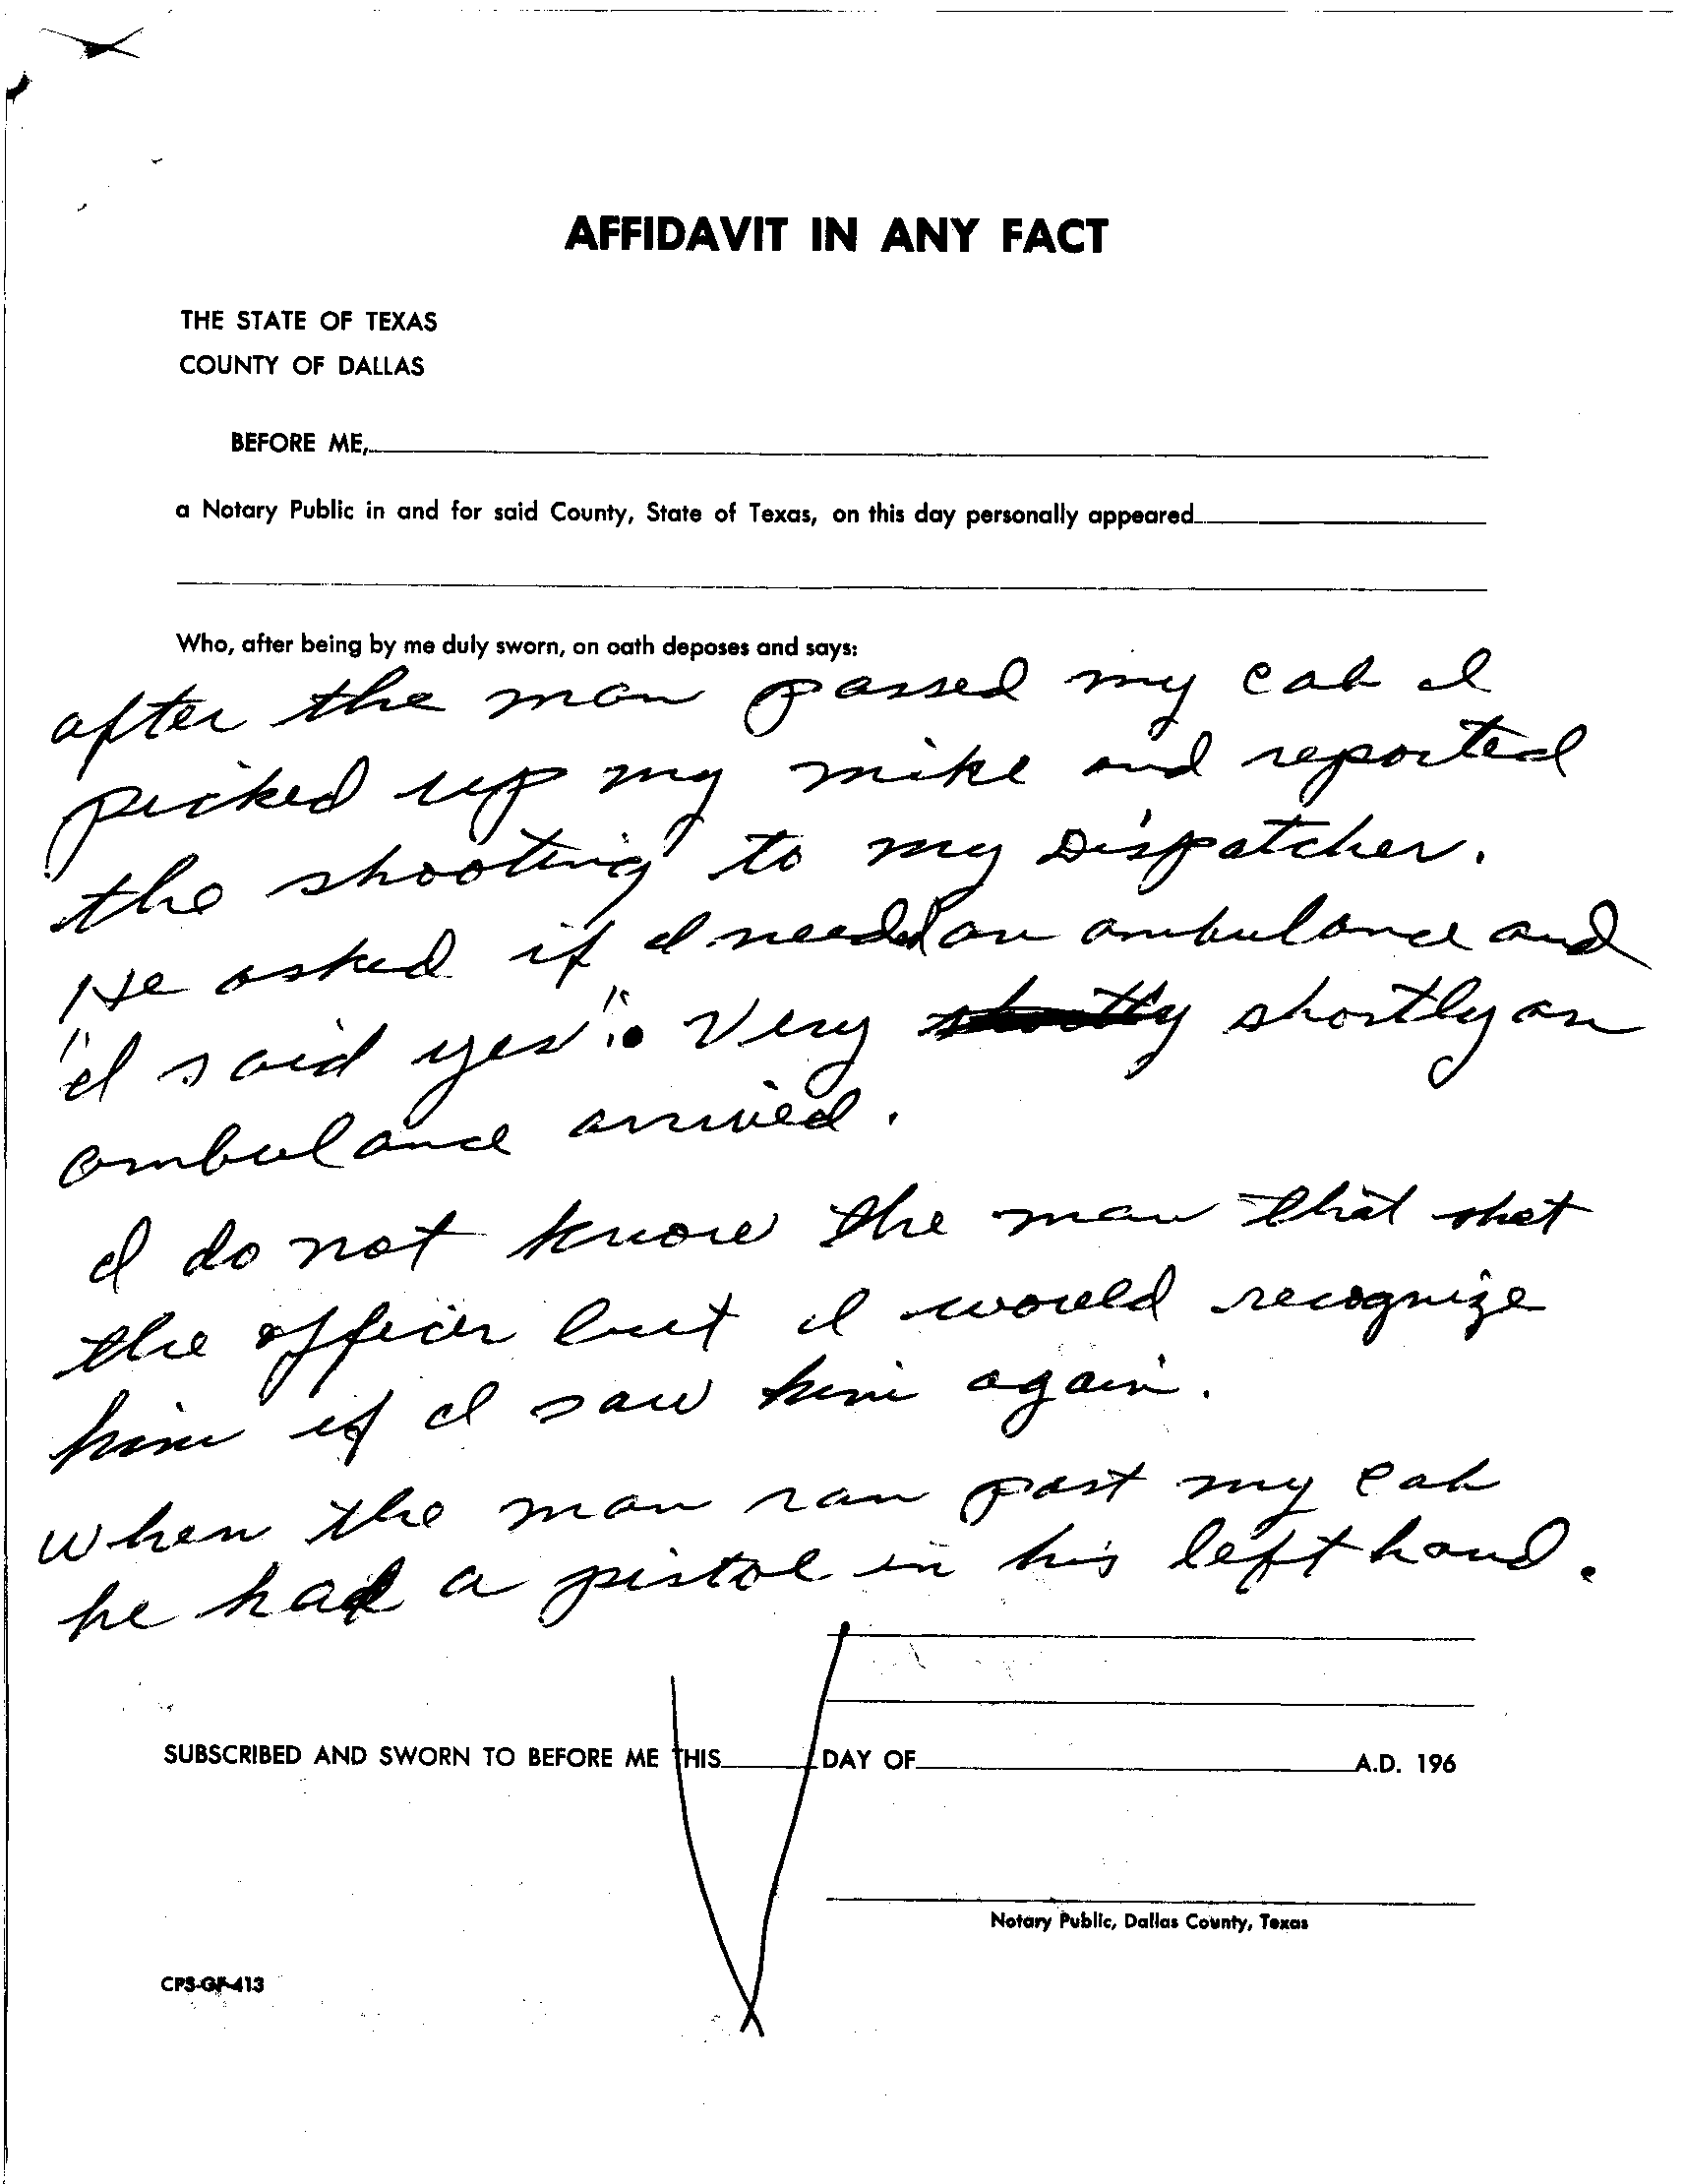 AFFIDAVIT IN ANY FACT
THE STATE OF TEXAS
COUNTY OF DALLAS
BEFORE ME,
a Notary Public in and for said County, State of Texas, on this day personally appeared
Who, after being by me duly sworn, on oath deposes and says:
after the man passed my cab I
picked up my mike and reported
the shooting to my Dispatcher.
He asked if I needed an ambulance and
"I said yes". Very shortly shortly an
ambulance arrived.
I do not know the man that shot
the officer but I would recognize
him if I saw him again.
When the man ran past my cab
he had a pistol in his left hand.
SUBSCRIBED AND SWORN TO BEFORE ME THIS DAY OF A.D. 196
Notary Public, Dallas County, Texas
CPS-GF-413